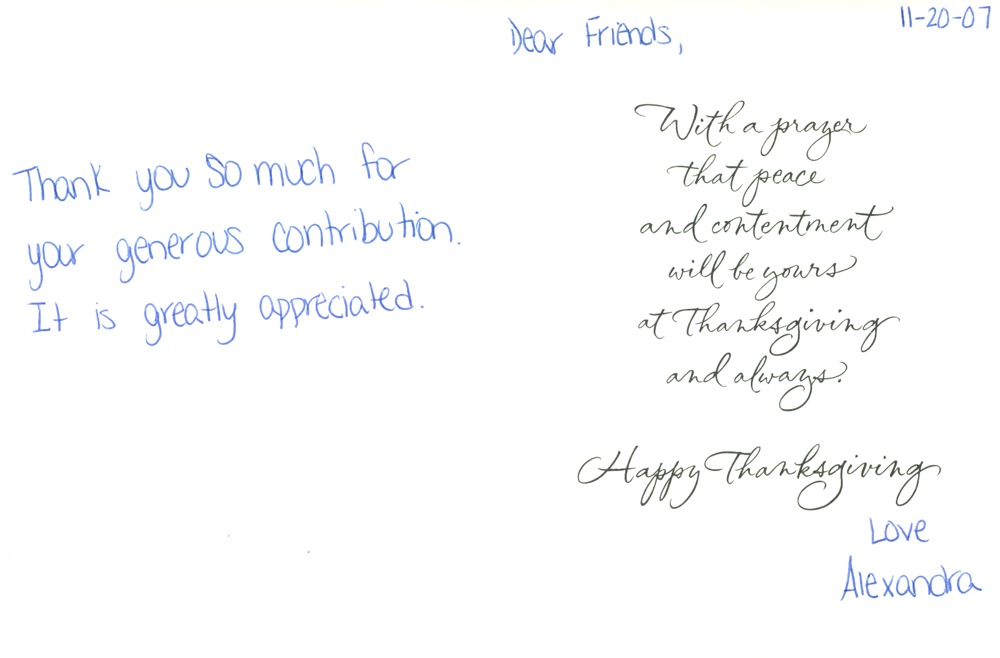 11-20-07
Dear Friends,
Thank you so much for
your generous contribution.
It is greatly appreciated.
With a prayer
that peace
and contentment
will be yours
at Thanksgiving
and always.
Happy Thanksgiving
Love
Alexandra